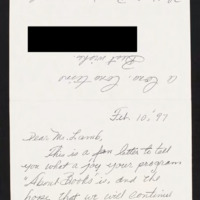 a long, long time.
Best wishes
Feb 10, '97
Dear Mr. Lamb,
This is a fan letter to tell
you what a joy your program
"About Books" is, and the
hope that we will continue